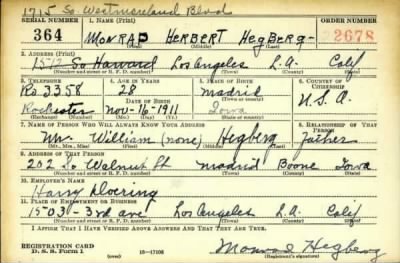 1715 So Westmoreland Blvd
SERIAL NUMBER 1. NAME (Print) ORDER NUMBER
364 MONRAD HERBERT HegBerg 2678
(First) (Middle) (Last)
2. ADDRESS (Print)
1512 So Harvard Los Angeles L.A. Calif
(Number and street or R. F. D. number) (Town) (County) (State)
3. TELEPHONE 4. AGE IN YEARS 5. PLACE OF BIRTH 6. COUNTRY OF CITIZENSHIP
Ro 3358 28 Madrid
DATE OF BIRTH (Town or county)
Rochester Nov-16-1911 Iowa U.S.A.
(Exchange) (Number) (Mo.) (Day) (Yr.) (State or country)
7. NAME OF PERSON WHO WILL ALWAYS KNOW YOUR ADDRESS 8. RELATIONSHIP OF THAT PERSON
Mr. William (none) Hegberg Father
(Mr., Mrs., Miss) (First) (Middle) (Last)
9. ADDRESS OF THAT PERSON
202 So Walnut St Madrid Boone Iowa
(Number and street or R. F. D. number) (Town) (County) (State)
10. EMPLOYER'S NAME
Harry Doering
11. PLACE OF EMPLOYMENT OR BUSINESS
1503 - 3rd ave Los Angeles L.A. Calif
(Number and street or R. F. D. number) (Town) (County) (State)
I AFFIRM THAT I HAVE VERIFIED ABOVE ANSWERS AND THAT THEY ARE TRUE.
REGISTRATION CARD
D. S. S. Form 1 16-17105 Monrad Hegberg
(Registrant's signature)